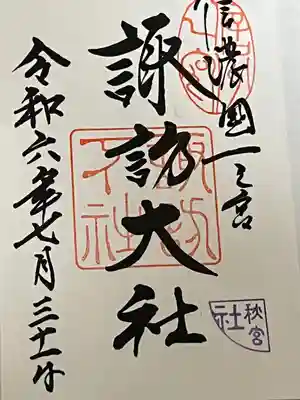 信濃國一之宮
諏訪大社
令和六年七月三十一日
諏訪大社
秋宮
社